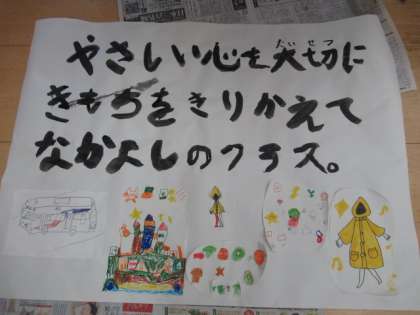 やさしい心を大切に
たいせつ
きもちをきりかえて
なかよしのクラス。